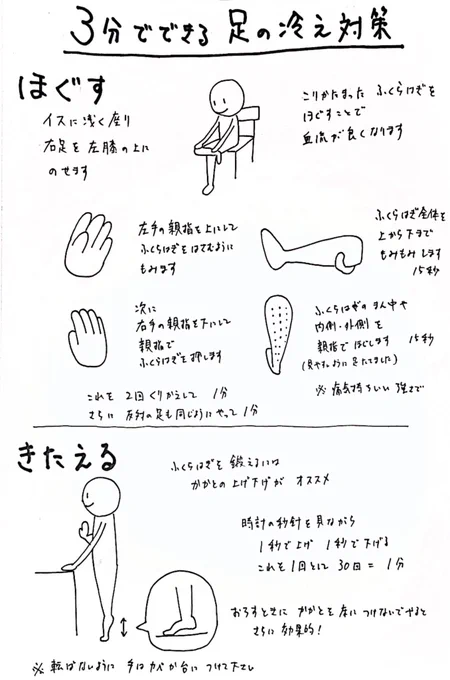 3分でできる 足の冷え対策
ほぐす
イスに浅く座り
右足を左膝の上に
のせます
こりかたまった ふくらはぎを
ほぐすことで
血流が良くなります
左手の親指を上にして
ふくらはぎをはさむように
もみます
ふくらはぎ全体を
上から下まで
もみもみします
15秒
次に
右手の親指を下にして
親指で
ふくらはぎを押します
ふくらはぎのまん中や
内側・外側を
親指でほぐします 15秒
(見やすいように足たてました)
※痛気持ちいい強さで
これを2回くりかえして 1分
さらに 反対の足も同じようにやって1分
きたえる
ふくらはぎを鍛えるには
かかとの上げ下げが オススメ
時計の秒針を見ながら
1秒で上げ 1秒で下げる
これを1回として 30回= 1分
おろすときに かかとを床につけないでやると
さらに効果的!
※転ばないように 手はカベか台につけて下さい